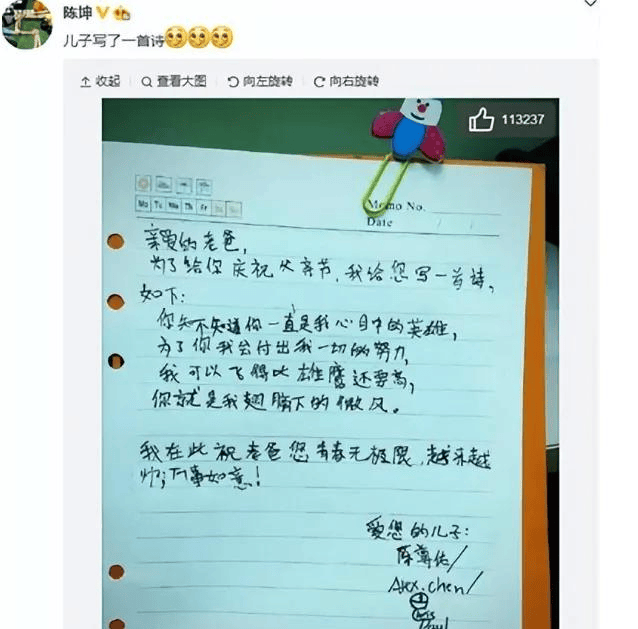 陈坤
儿子写了一首诗
收起 查看大图 向左旋转 向右旋转
113237
Mo Tu We Th Fr Sa Su
Memo No.
Date
亲爱的老爸,
为了给你庆祝父亲节,我给您写一首诗,
如下:
你知不知道你一直是我心目中的英雄,
为了你我会付出我一切的努力,
我可以飞得比雄鹰还要高,
你就是我翅膀下的微风。
我在此祝老爸您青春无极限,越来越
帅,万事如意!
爱您的儿子:
陈尊佑/
Alex.chen/